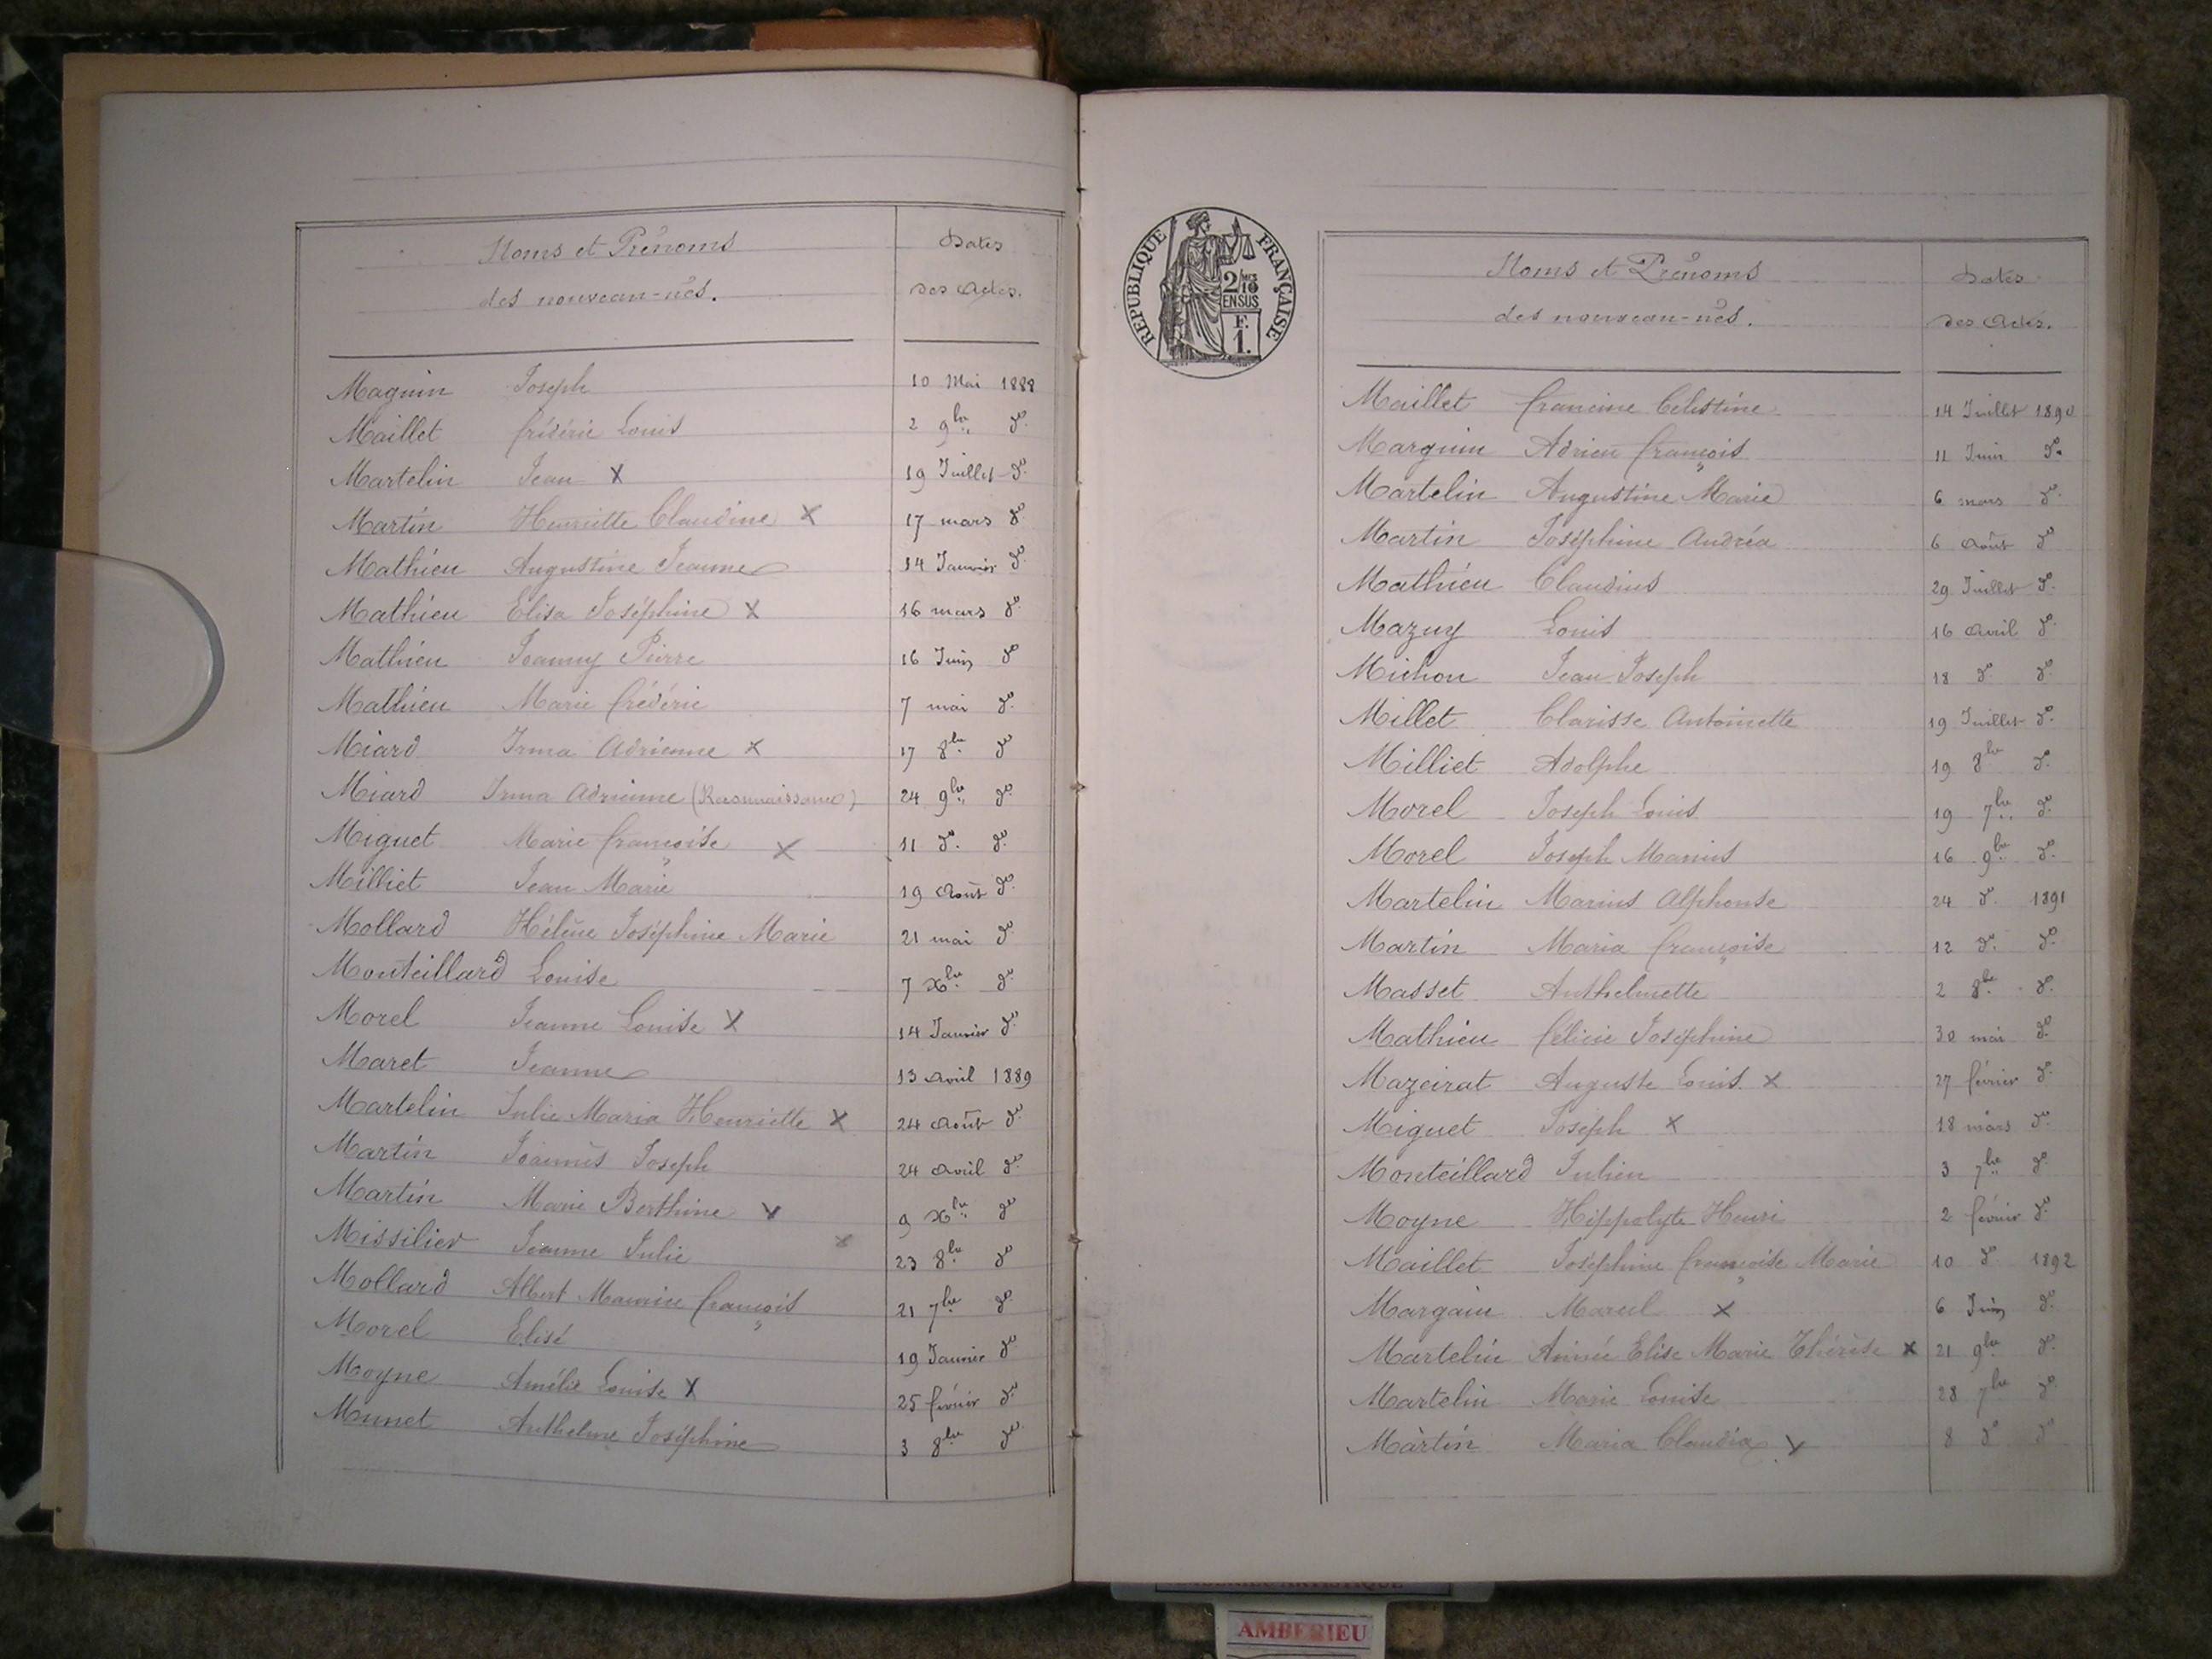 Noms et Prénoms
des nouveau-nés.
Dates
des Actes.
Maguin Joseph 10 Mai 1888
Maillet frédéric Louis 2 9bre do
Martelin Jean X 19 Juillet do
Martin Henriette Claudine X 17 mars do
Mathieu Augustine Jeanne 14 Janvier do
Mathieu Elisa Joséphine X 16 mars do
Mathieu Joanny Pierre 16 Juin do
Mathieu Marie frédéric 7 mai do
Miard Irma Adrienne X 17 8bre do
Miard Irma Adrienne (Reconnaissance) 24 9bre do
Miguet Marie françoise X 11 do do
Milliet Jean Marie 19 Août do
Mollard Hélène Joséphine Marie 21 mai do
Monteillard Louise 7 Xbre do
Morel Jeanne Louise X 14 Janvier do
Maret Jeanne 13 Avril 1889
Martelin Julie Maria Henriette X 24 Août do
Martin Joannès Joseph 24 Avril do
Martin Marie Berthine X 9 Xbre do
Missilier Jeanne Julie X 23 8bre do
Mollard Albert Maurice françois 21 7bre do
Morel Elisé 19 Janvier do
Moyne Amélie Louise X 25 février do
Munet Anthelme Joséphine 3 8bre do
REPUBLIQUE FRANÇAISE
2/10
EN SUS
F.
1.
Noms et Prénoms
des nouveau-nés.
Dates
des Actes.
Maillet francine Célestine 14 Juillet 1890
Marguin Adrien françois 11 Juin do
Martelin Augustine Marie 6 mars do
Martin Joséphine Andréa 6 Août do
Mathieu Claudius 29 Juillet do
Mazuy Louis 16 Avril do
Michon Jean Joseph 18 do do
Millet Clarisse Antoinette 19 Juillet do
Milliet Adolphe 19 8bre do
Morel Joseph Louis 19 7bre do
Morel Joseph Marius 16 9bre do
Martelin Marius Alphonse 24 do 1891
Martin Maria françoise 12 do do
Masset Anthelmette 2 8bre do
Mathieu félicie Joséphine 30 mai do
Mazeirat Auguste Louis X 27 février do
Miguet Joseph X 18 mars do
Monteillard Julien 3 7bre do
Moyne Hippolyte Henri 2 février do
Maillet Joséphine françoise Marie 10 do 1892
Margain Marcel X 6 Juin do
Martelin Aimée Elise Marie Thérèse X 21 9bre do
Martelin Marie Louise 28 7bre do
Martin Maria Claudia X 8 do do
AMBERIEU